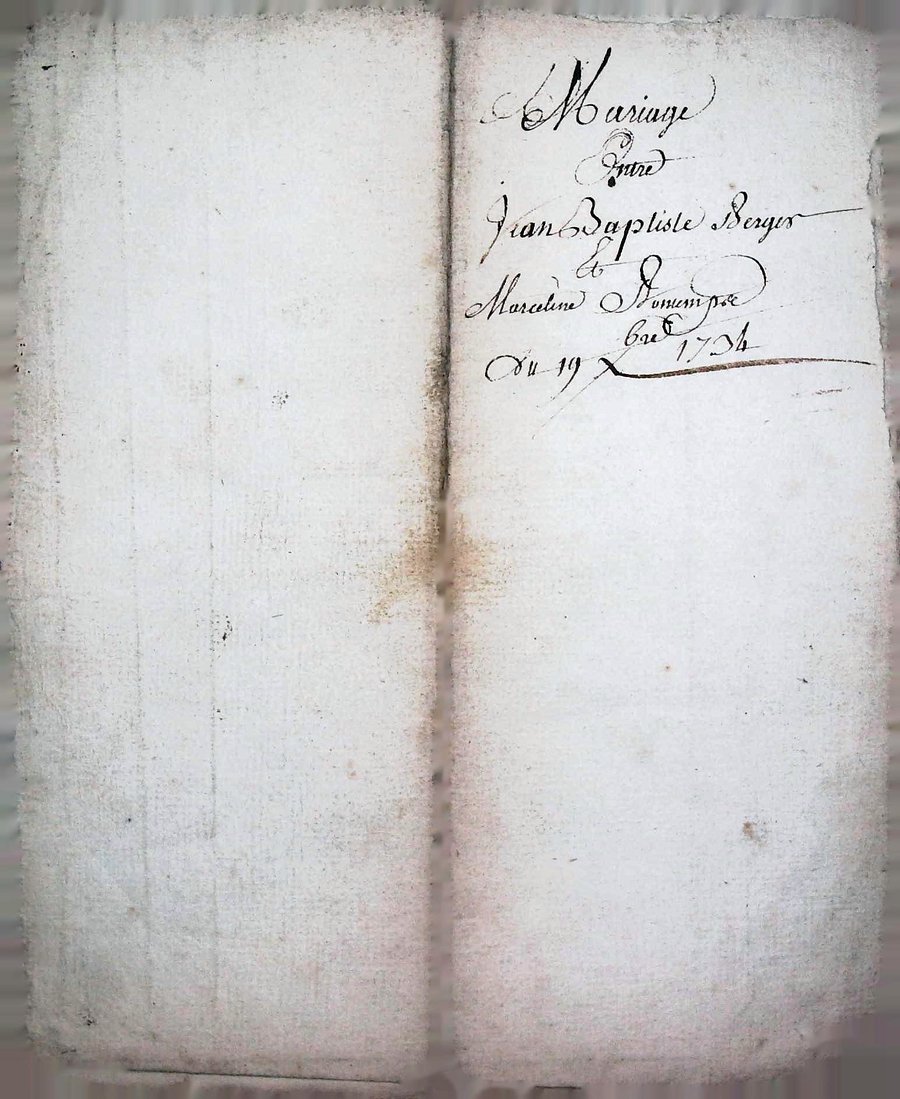 Mariage
Entre
Jean Baptiste Berger
Et
Marceline
Du 19 bre 1734